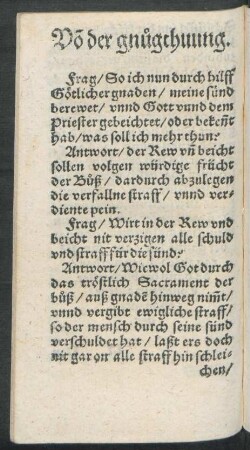 Võ der gnůgthuung.
Frag/ So ich nun durch hilff
Götlicher gnaden/ meine sünd
berewet/ vnnd Gott vnnd dem
Priester gebeichtet/ oder bekeñt
hab/ was soll ich mehr thun?
Antwort/ der Rew vñ beicht
sollen volgen würdige frücht
der Bůß/ dardurch abzulegen
die verfallne straff/ vnnd ver-
diente pein.
Frag/ Wirt in der Rew vnd
beicht nit verzigen alle schuld
vnd straff für die sünd?
Antwort/ Wiewol Got durch
das tröstlich Sacrament der
bůß/ auß gnadẽ hinweg nim̃t/
vnnd vergibt ewigliche straff/
so der mensch durch seine sünd
verschuldet hat/ laßt ers doch
nit gar on alle straff hin schlei-
chen/